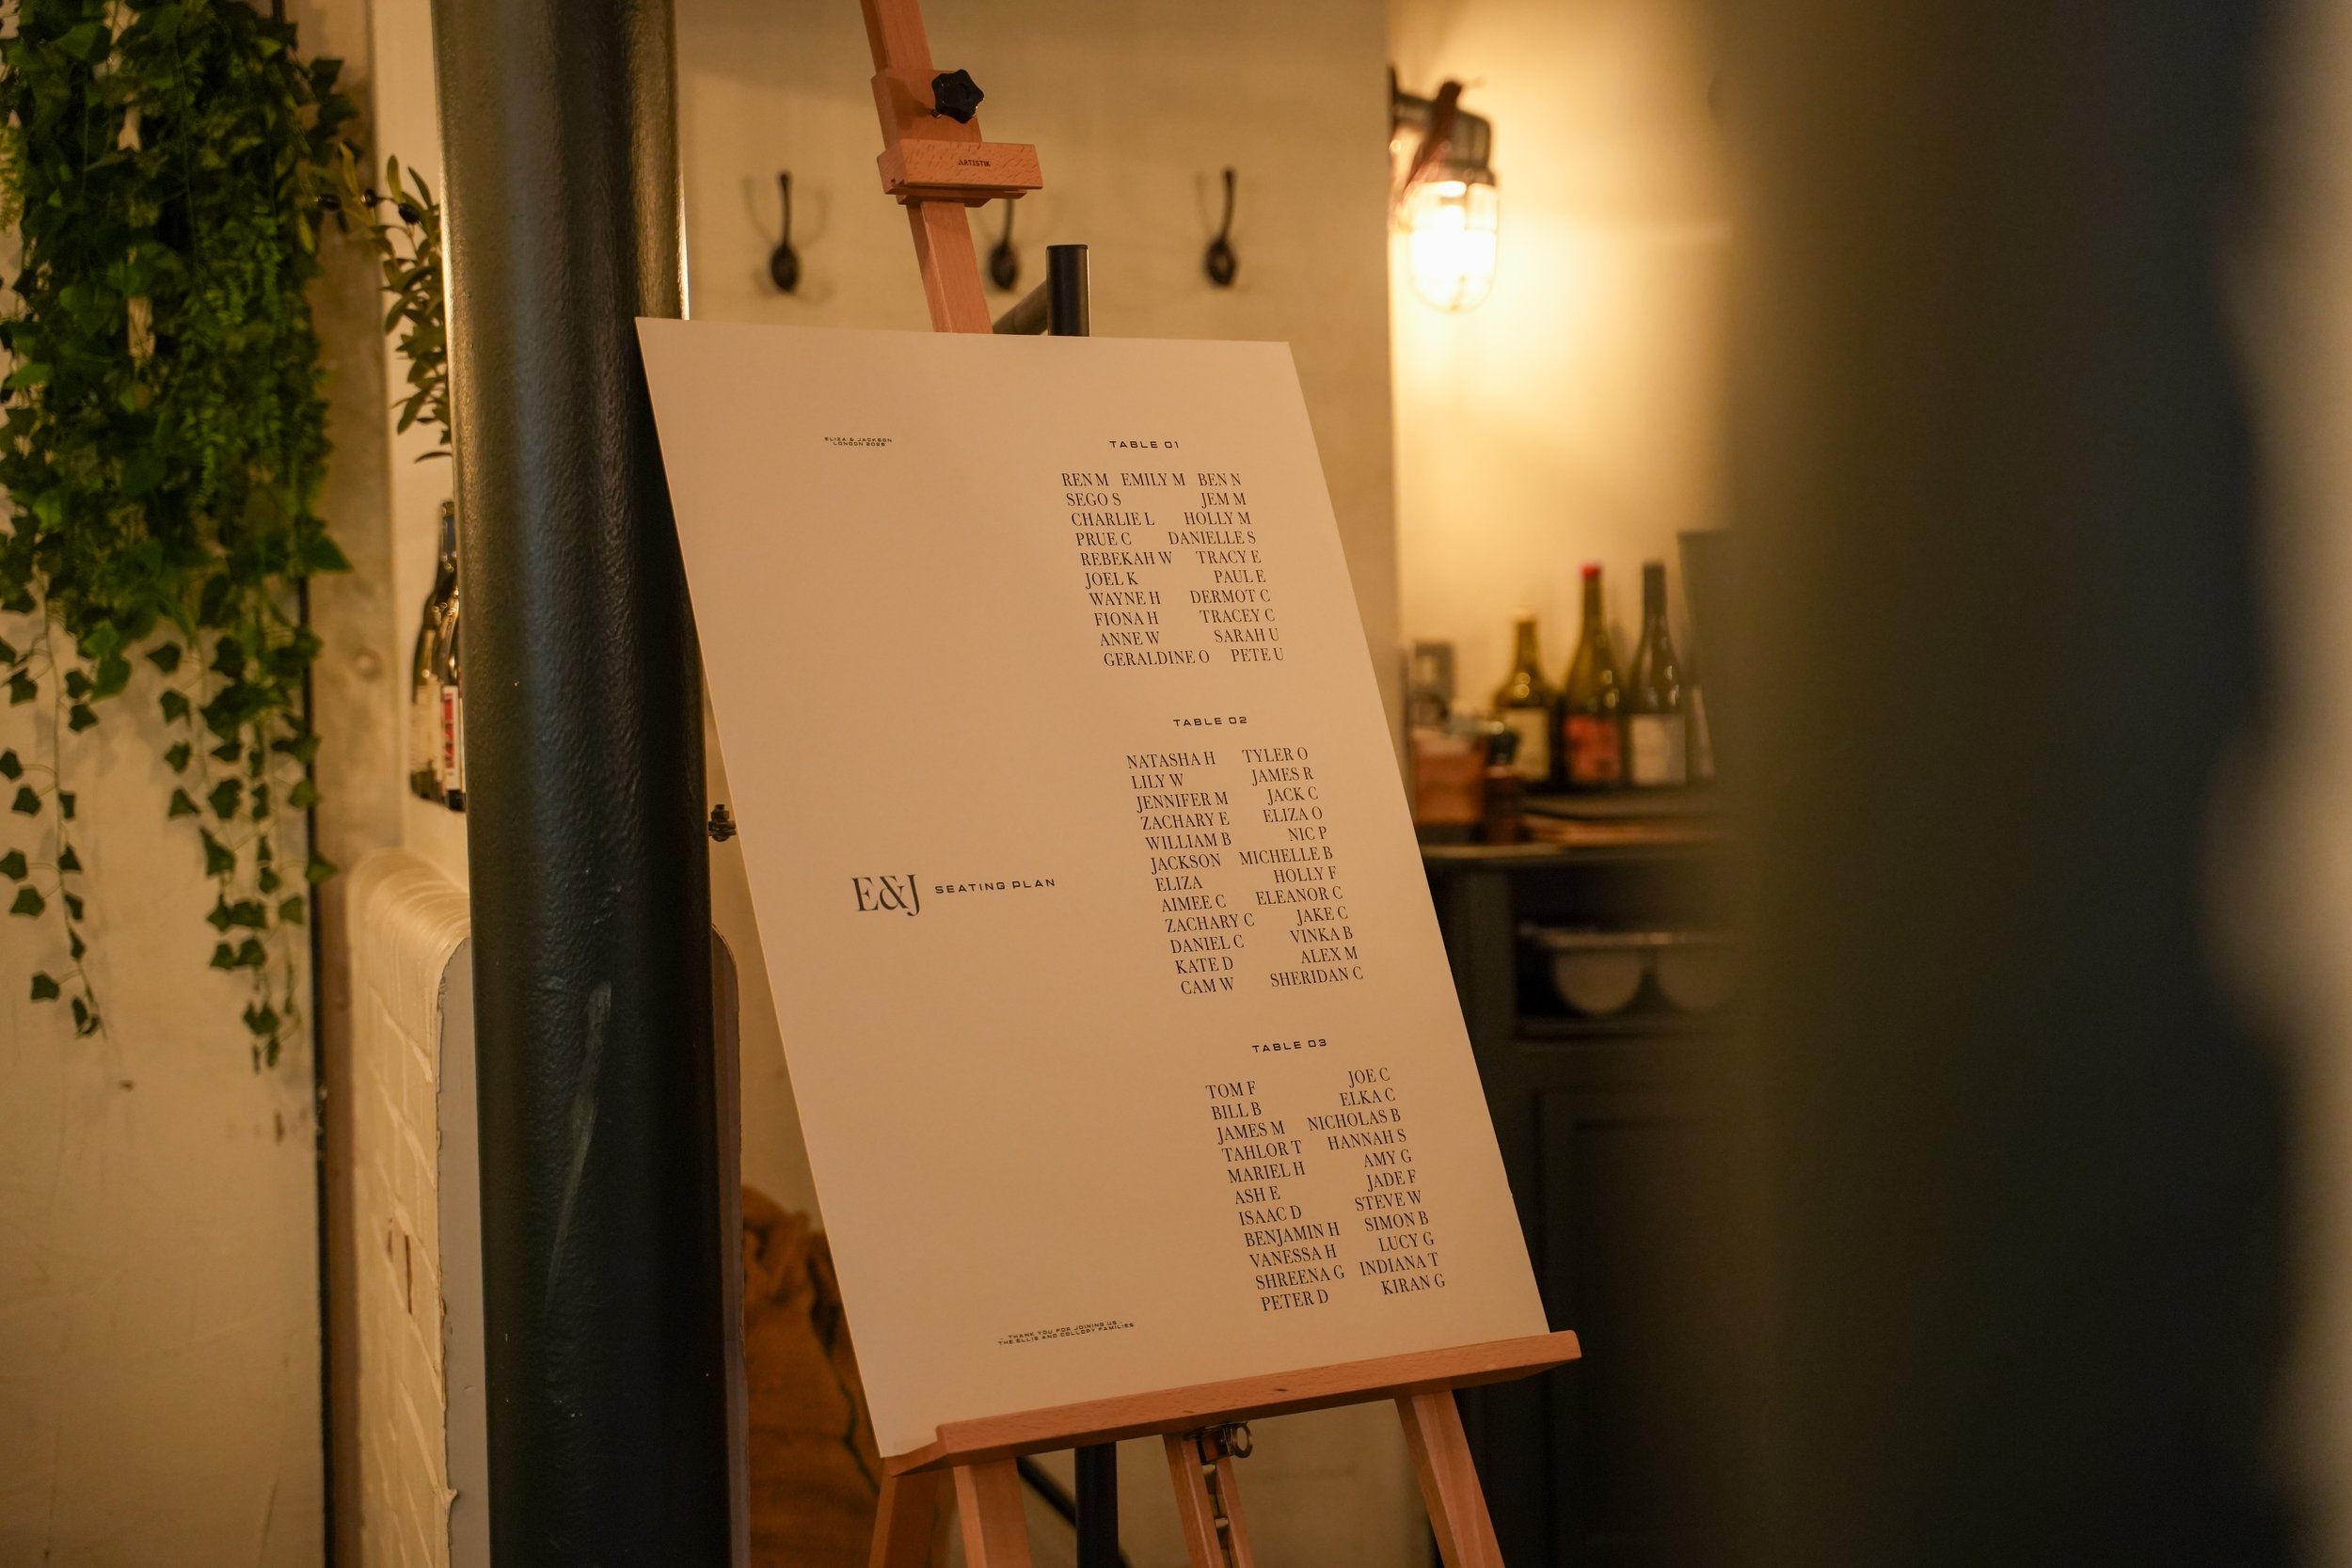 ARTISTIK
ELIZA & JACKSON
LONDON 2025
TABLE 01
REN M EMILY M BEN N
SEGO S JEM M
CHARLIE L HOLLY M
PRUE C DANIELLE S
REBEKAH W TRACY E
JOEL K PAUL E
WAYNE H DERMOT C
FIONA H TRACEY C
ANNE W SARAH U
GERALDINE O PETE U
TABLE 02
NATASHA H TYLER O
LILY W JAMES R
JENNIFER M JACK C
ZACHARY E ELIZA O
WILLIAM B NIC P
JACKSON MICHELLE B
ELIZA HOLLY F
AIMEE C ELEANOR C
ZACHARY C JAKE C
DANIEL C VINKA B
KATE D ALEX M
CAM W SHERIDAN C
E&J SEATING PLAN
TABLE 03
TOM F JOE C
BILL B ELKA C
JAMES M NICHOLAS B
TAHLOR T HANNAH S
MARIEL H AMY G
ASH E JADE F
ISAAC D STEVE W
BENJAMIN H SIMON B
VANESSA H LUCY G
SHREENA G INDIANA T
PETER D KIRAN G
THANK YOU FOR JOINING US,
THE ELLIS AND COLLORY FAMILIES